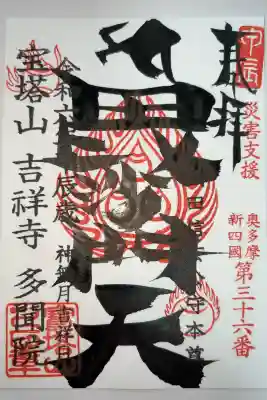 奉拝
災害支援
奥多摩
新四國
第三十六番
毘沙門天
守本尊
令和六
辰歳
神無月
吉祥日
宝塔山
吉祥寺
多聞院